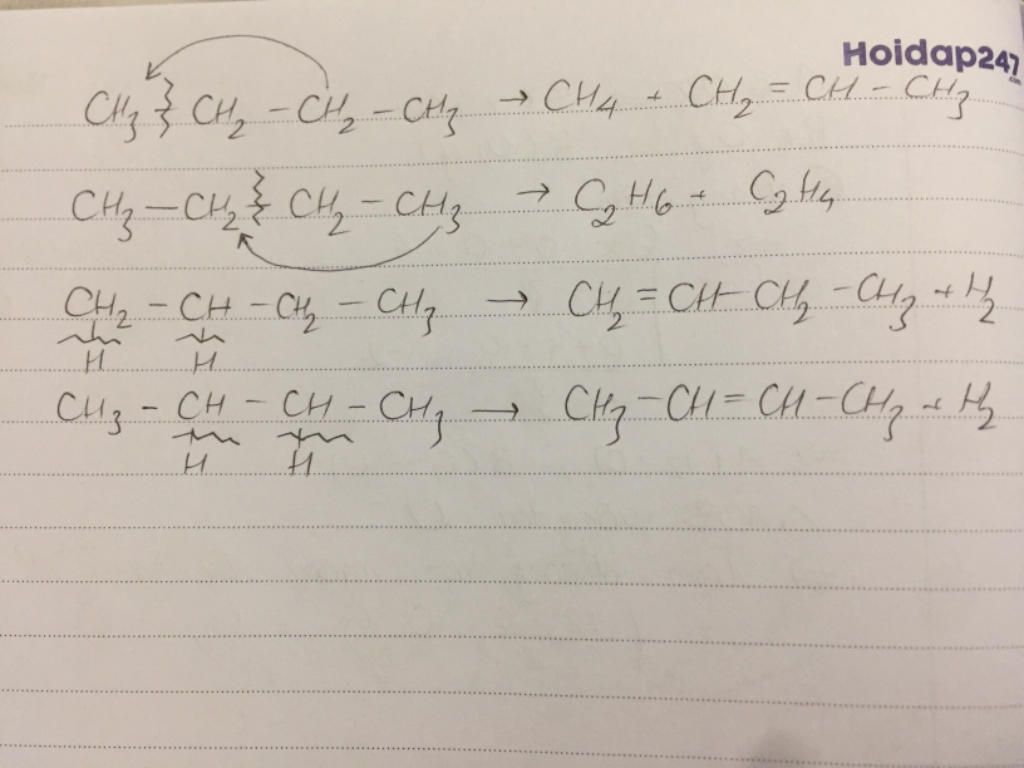 Hoidap247
.com
CH₃ ⌇ CH₂ - CH₂ - CH₃ → CH₄ + CH₂ = CH - CH₃
CH₃ — CH₂ ⌇ CH₂ - CH₃ → C₂H₆ + C₂H₄
CH₂ - CH - CH₂ - CH₃ → CH₂ = CH - CH₂ - CH₃ + H₂
H H
CH₃ - CH - CH - CH₃ → CH₃ - CH = CH - CH₃ + H₂
H H